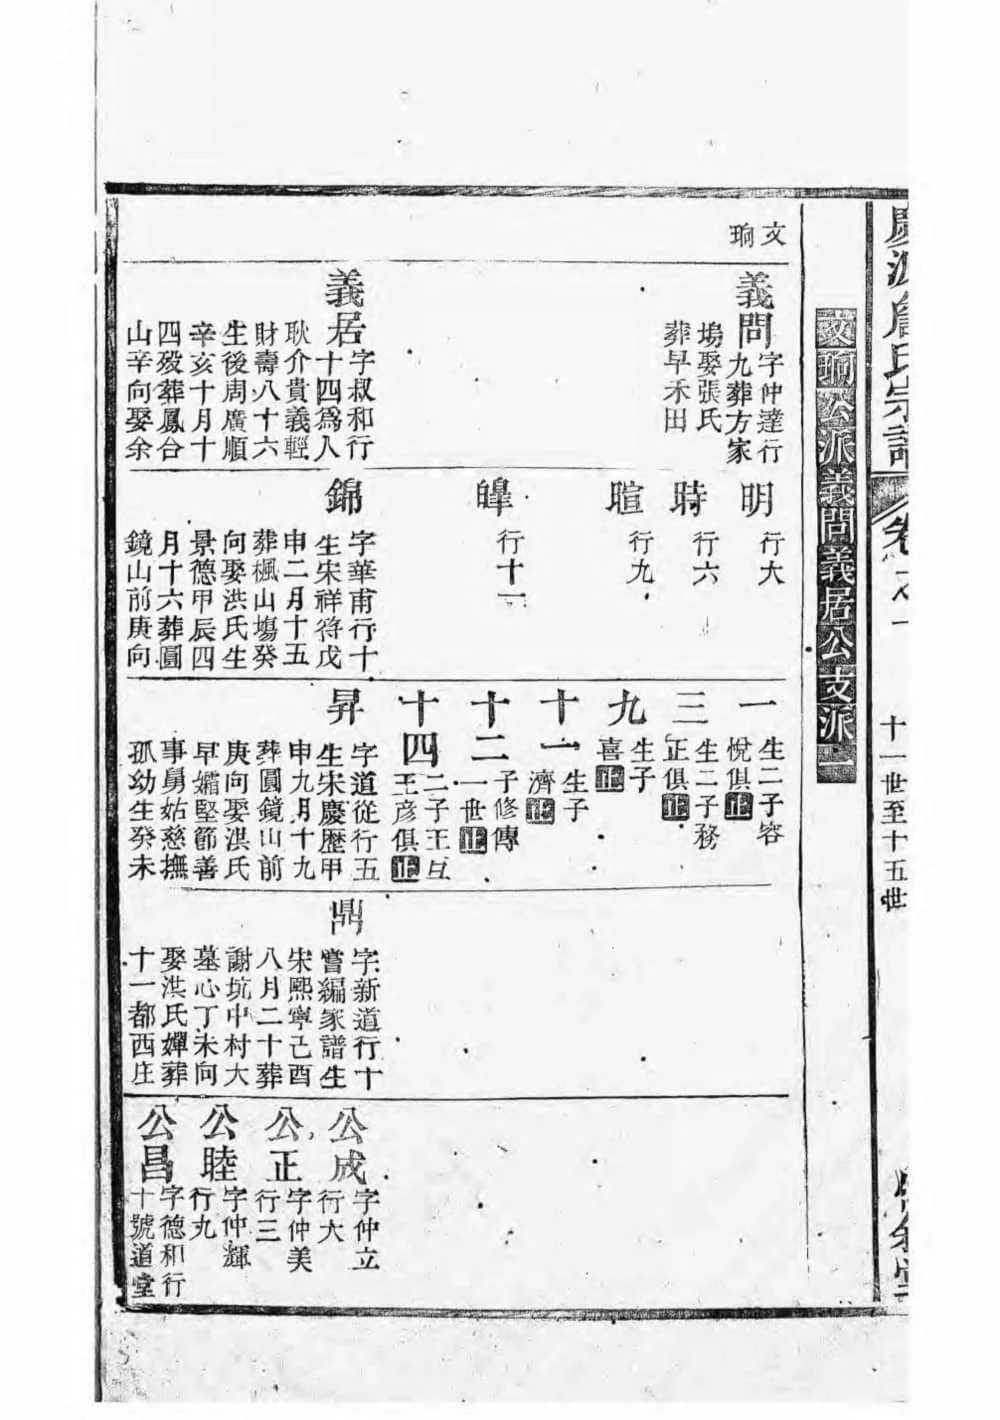 慶源詹氏宗譜
卷之一
十一世至十五世
文㫾公派義問義居公支派
文
義問
字仲達行
九葬方家
塢娶張氏
葬早禾田
義居
字叔和行
十四為人
耿介貴義輕
財壽八十六
生後周廣順
辛亥十月十
四歿葬鳳台
山辛向娶余
明
行大
時
行六
暄
行九
皥
行十一
錦
字華甫行十
生宋祥符戊
申二月十五
葬楓山塢癸
向娶洪氏生
景德甲辰四
月十六葬圓
鏡山前庚向
一
生二子容
悅俱止
三
生二子務
正俱止
九
生子
喜止
十一
生子
濟止
十二
子修傳
一世止
十四
二子王互
王彥俱止
昇
字道從行五
生宋慶歷甲
申九月十九
葬圓鏡山前
庚向娶洪氏
早孀堅節善
事舅姑慈撫
孤幼生癸未
鼎
字新道行十
嘗編家譜生
宋熙寧己酉
八月二十葬
謝坑中村大
墓心丁未向
娶洪氏嬋葬
十一都西庄
公成
字仲立
行大
公正
字仲美
行三
公睦
字仲輝
行九
公昌
字德和行
十號道堂